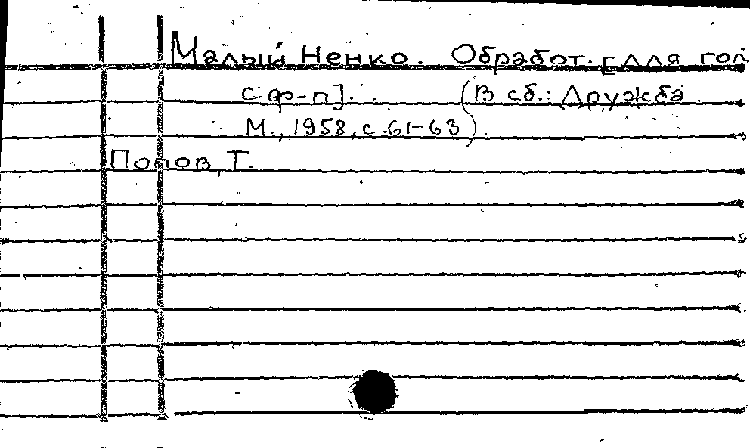 Малый Ненко. Обработ. [для гол
с ф-п]. (В сб.: Дружба
М., 1958, с. 61-63).
Попов, Т.